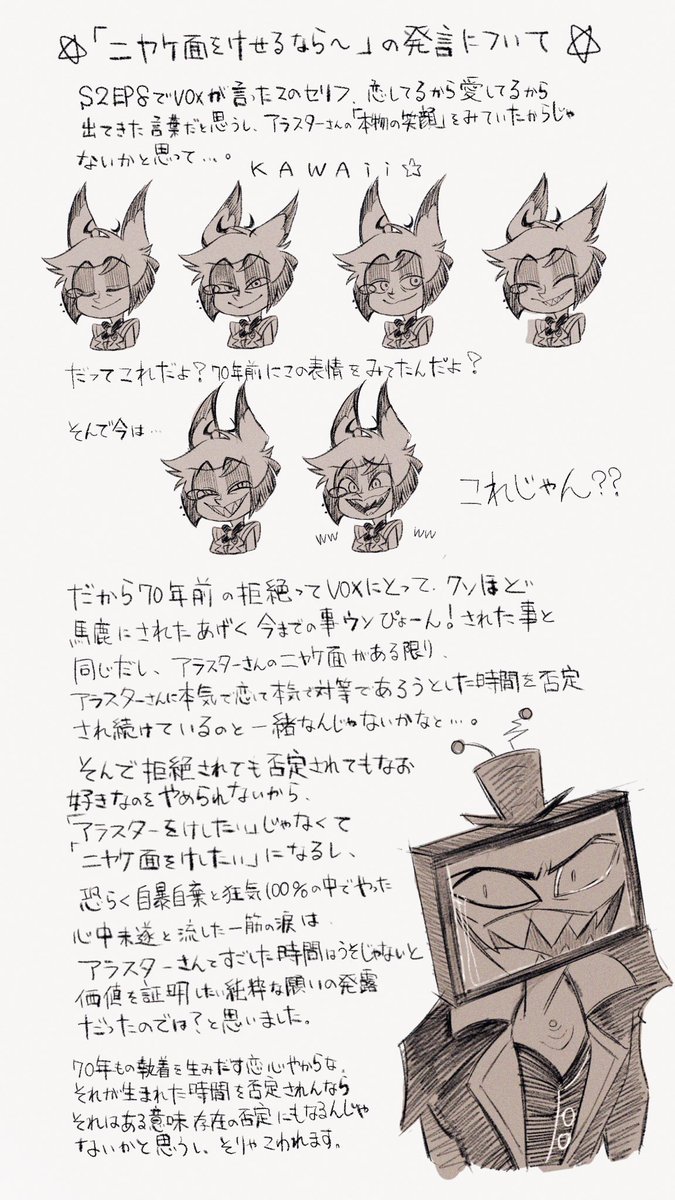 ☆「ニヤケ面をけせるなら〜」の発言について☆
S2EP8でVOXが言ったこのセリフ、恋してるから愛してるから
出てきた言葉だと思うし、アラスターさんの「本物の笑顔」をみていたからじゃ
ないかと思って…。
KAWAii☆
だってこれだよ?70年前にこの表情をみてたんだよ?
そんで今は…
これじゃん??
ww ww
だから70年前の拒絶ってVOXにとって、クソほど
馬鹿にされたあげく今までの事ウンぴょーん!された事と
同じだし、アラスターさんのニヤケ面がある限り、
アラスターさんに本気で恋して本気で対等であろうとした時間を否定
され続けているのと一緒なんじゃないかなと…。
そんで拒絶されても否定されてもなお
好きなのをやめられないから、
「アラスターをけしたい」じゃなくて
「ニヤケ面をけしたい」になるし、
恐らく自暴自棄と狂気100%の中でやった
心中未遂と流した一筋の涙は
アラスターさんとすごした時間はうそじゃないと
価値を証明したい純粋な願いの発露
だったのでは?と思いました。
70年もの執着を生みだす恋心やからな、
それが生まれた時間を否定されんなら
それはある意味存在の否定にもなるんじゃ
ないかと思うし、そりゃこわれます。